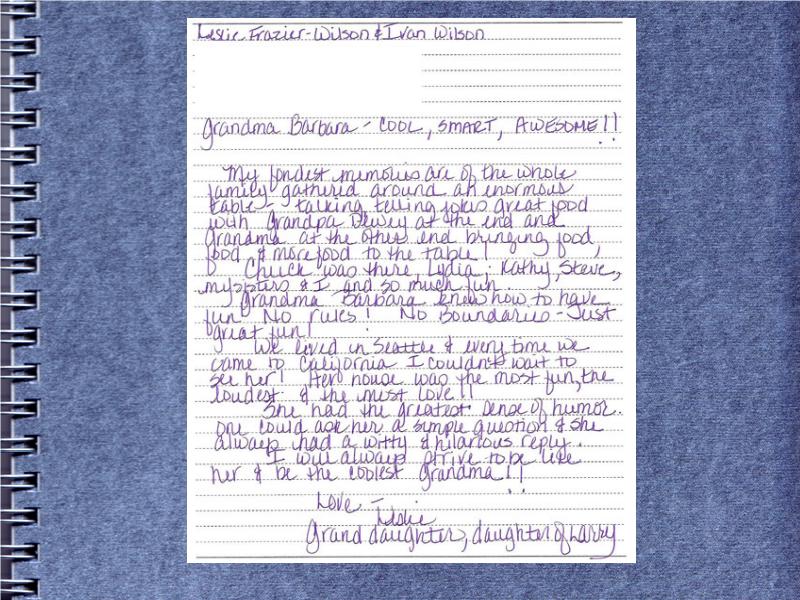 Leslie Frazier-Wilson & Ivan Wilson
Grandma Barbara - COOL, SMART, AWESOME!!
My fondest memories are of the whole
family gathered around an enormous
table - talking telling jokes great food
with Grandpa Dewey at the end and
Grandma at the other end bringing food,
food & more food to the table!
Chuck was there, Lydia, Kathy, Steve,
my sisters & I and so much fun.
Grandma Barbara knew how to have
fun! No rules! No Boundaries - Just
great fun!
We lived in Seattle & every time we
came to California I couldn't wait to
see her! Her house was the most fun, the
loudest & the most love!!
She had the greatest sense of humor.
One could ask her a simple question & she
always had a witty & hilarious reply.
I will always strive to be like
her & be the coolest grandma!!
Love -
Leslie
Grand daughter, daughter of Larry